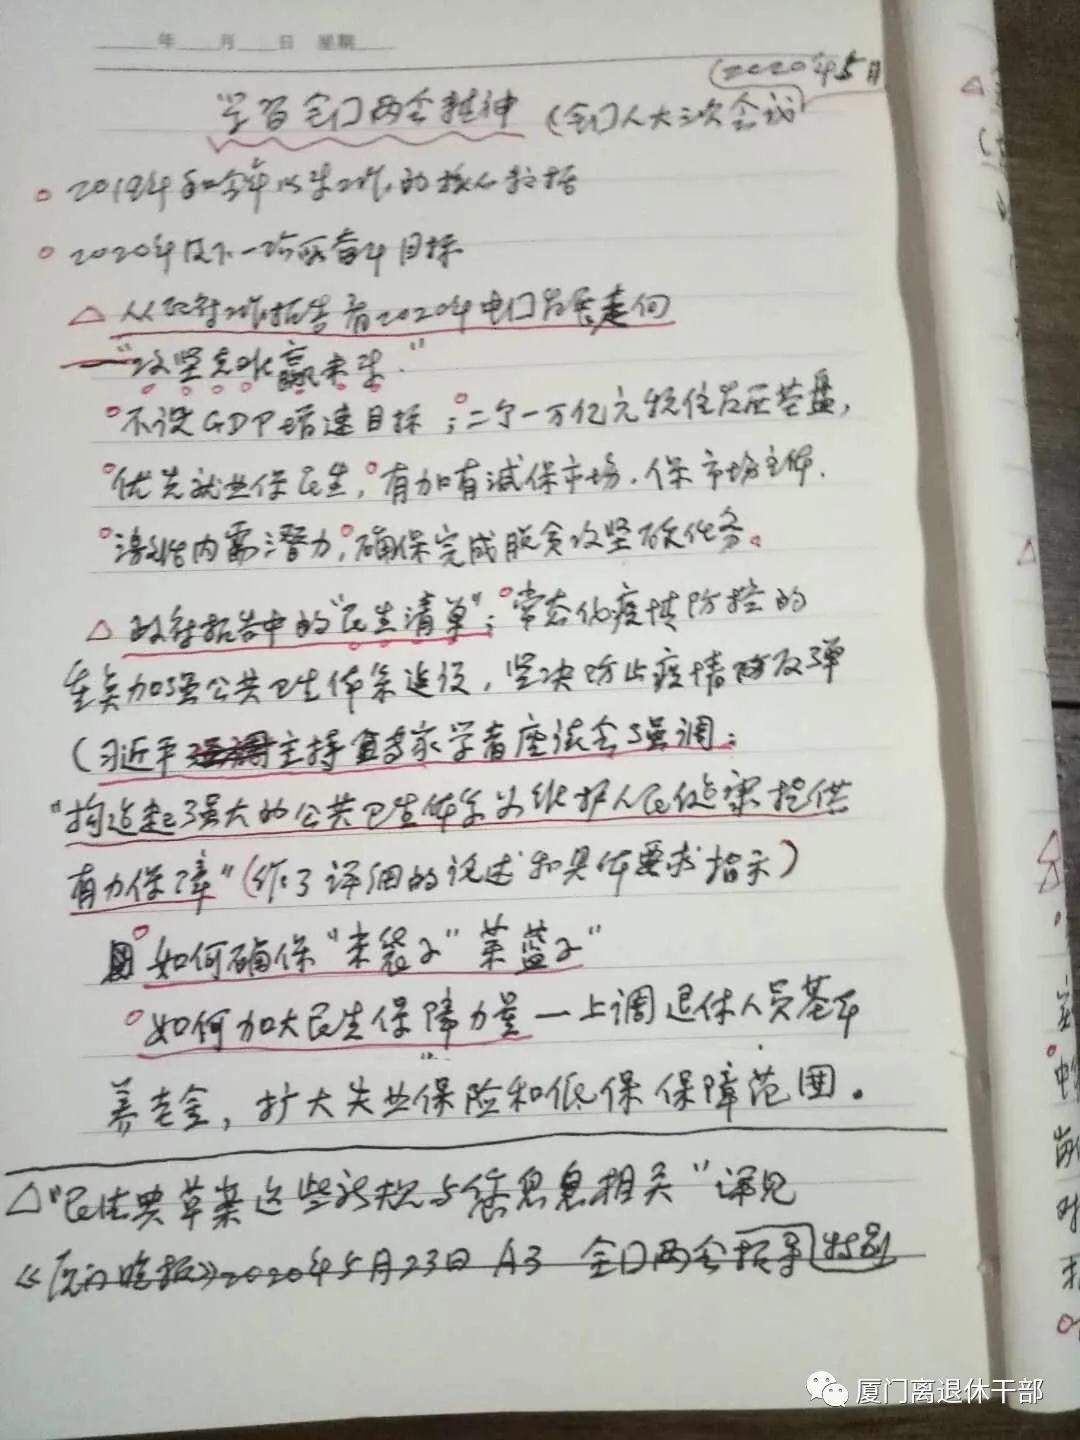 年 月 日 星期
(2020年5月
学习全国两会精神 (全国人大三次会议
2019年和今年以来工作的核心
2020年及下一阶段奋斗目标
△ 从政府工作报告看2020年中国发展走向
—"攻坚克难赢未来"
不设GDP增速目标;二个一万亿元稳住发展基盘,
优先就业保民生,有加有减保市场.保市场主体.
激活内需潜力,确保完成脱贫攻坚硬任务。
△ 政府报告中的"民生清单";常态化疫情防控的
重点加强公共卫生体系建设,坚决防止疫情反弹
(习近平主持专家学者座谈会强调:
"构造起强大的公共卫生体系为维护人民健康提供
有力保障"(作了详细的论述和具体要求指示)
如何确保"米袋子"菜篮子"
如何加大民生保障力量—上调退休人员基本
养老金,扩大失业保险和低保保障范围。
△"民法典草案这些新规与您息息相关"详见
《厦门晚报》2020年5月23日 A3 全国两会报导特别
厦门离退休干部